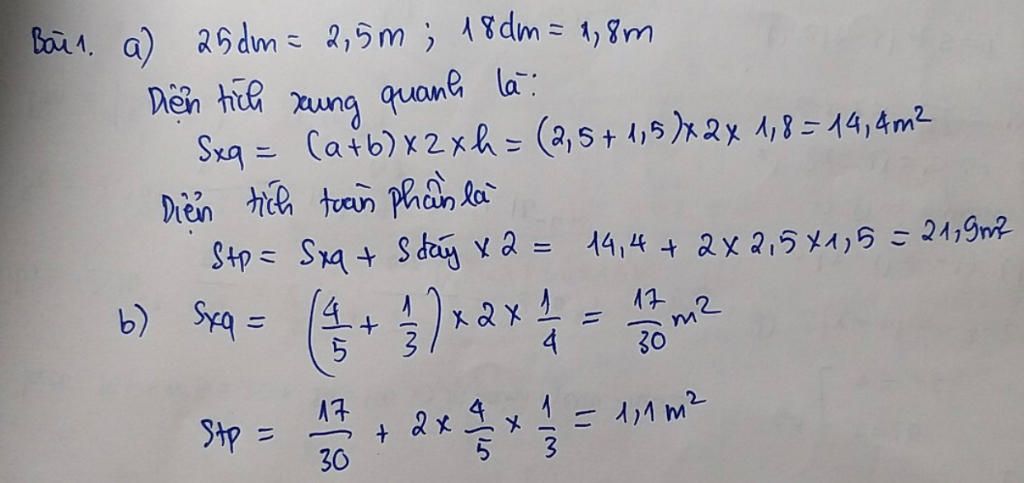 Bài 1. a) 25dm = 2,5m ; 18dm = 1,8m
Diện tích xung quanh là:
Sxq = (a+b) x 2 x h = (2,5 + 1,5) x 2 x 1,8 = 14,4m²
Diện tích toàn phần là
Stp = Sxq + Sđáy x 2 = 14,4 + 2 x 2,5 x 1,5 = 21,9m²
b) Sxq = (4/5 + 1/3) x 2 x 1/4 = 17/30 m²
Stp = 17/30 + 2 x 4/5 x 1/3 = 1,1m²